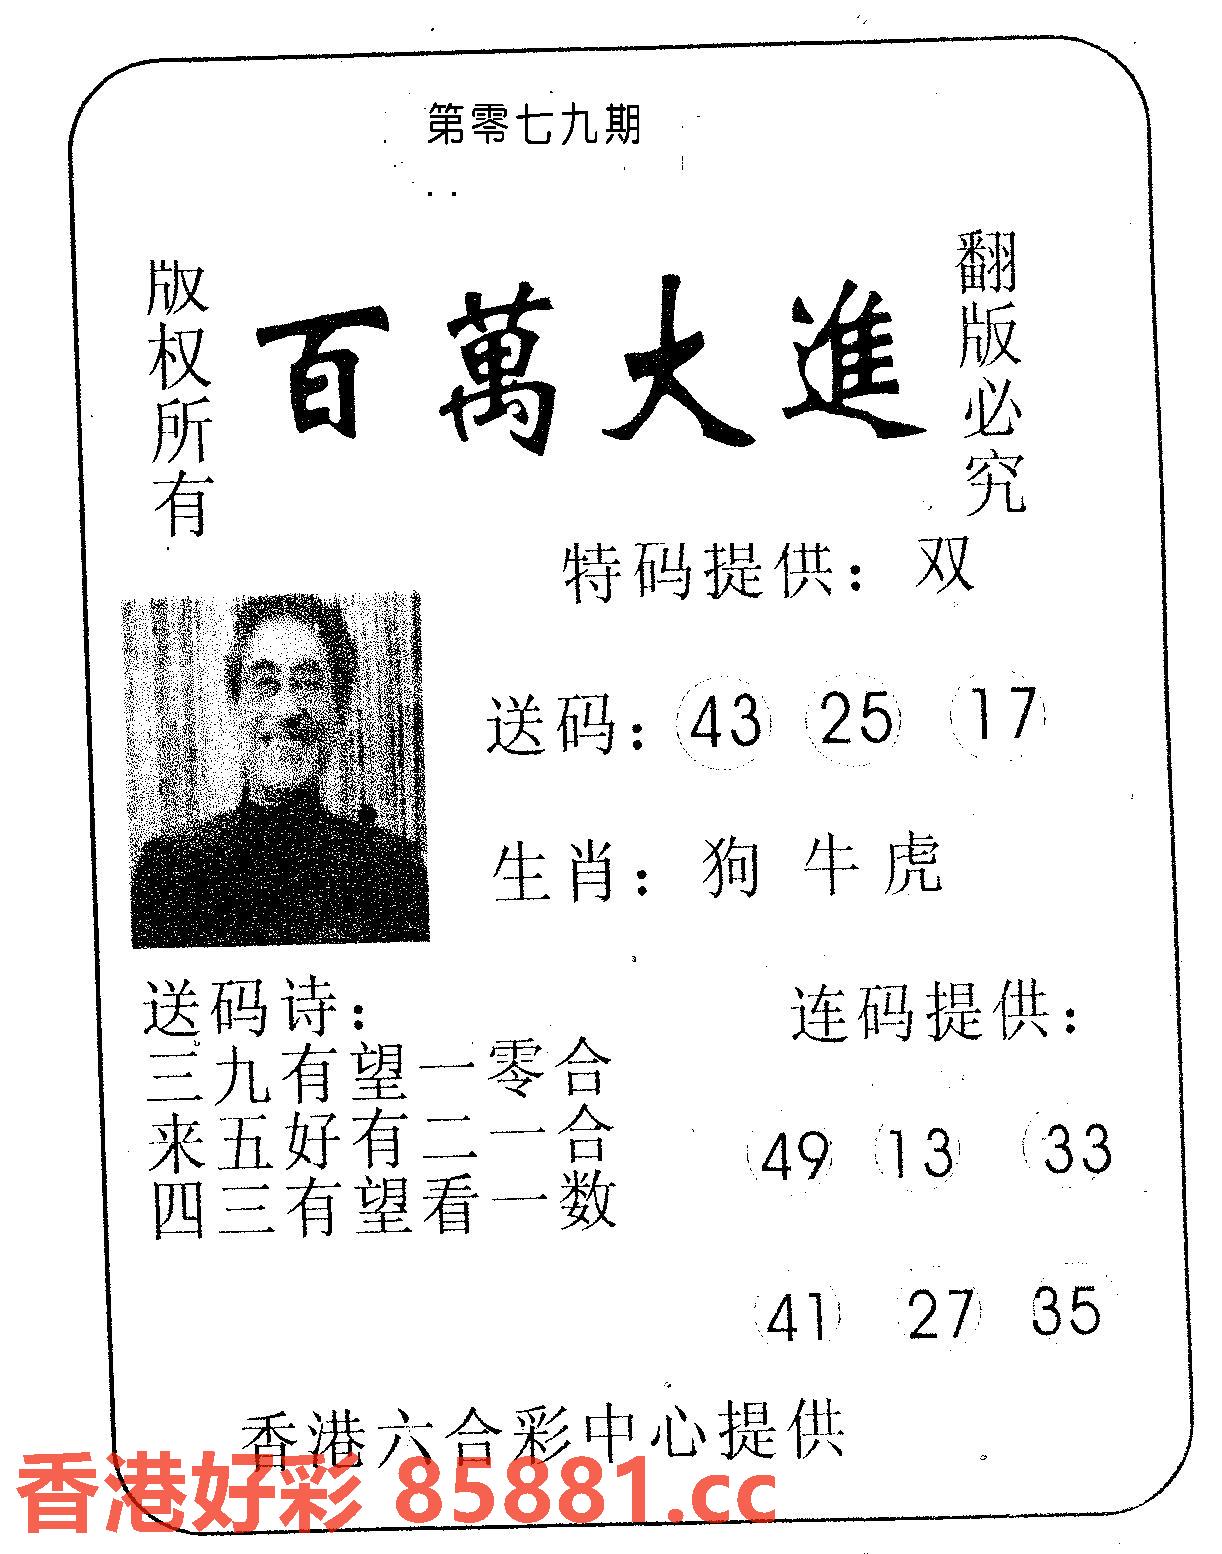 第零七九期
版权所有
百萬大進
翻版必究
特码提供：双
送码：43 25 17
生肖：狗 牛 虎
送码诗：
三九有望一零合
来五好有二一合
四三有望看一数
连码提供：
49 13 33
41 27 35
香港六合彩中心提供
香港好彩 85881.cc